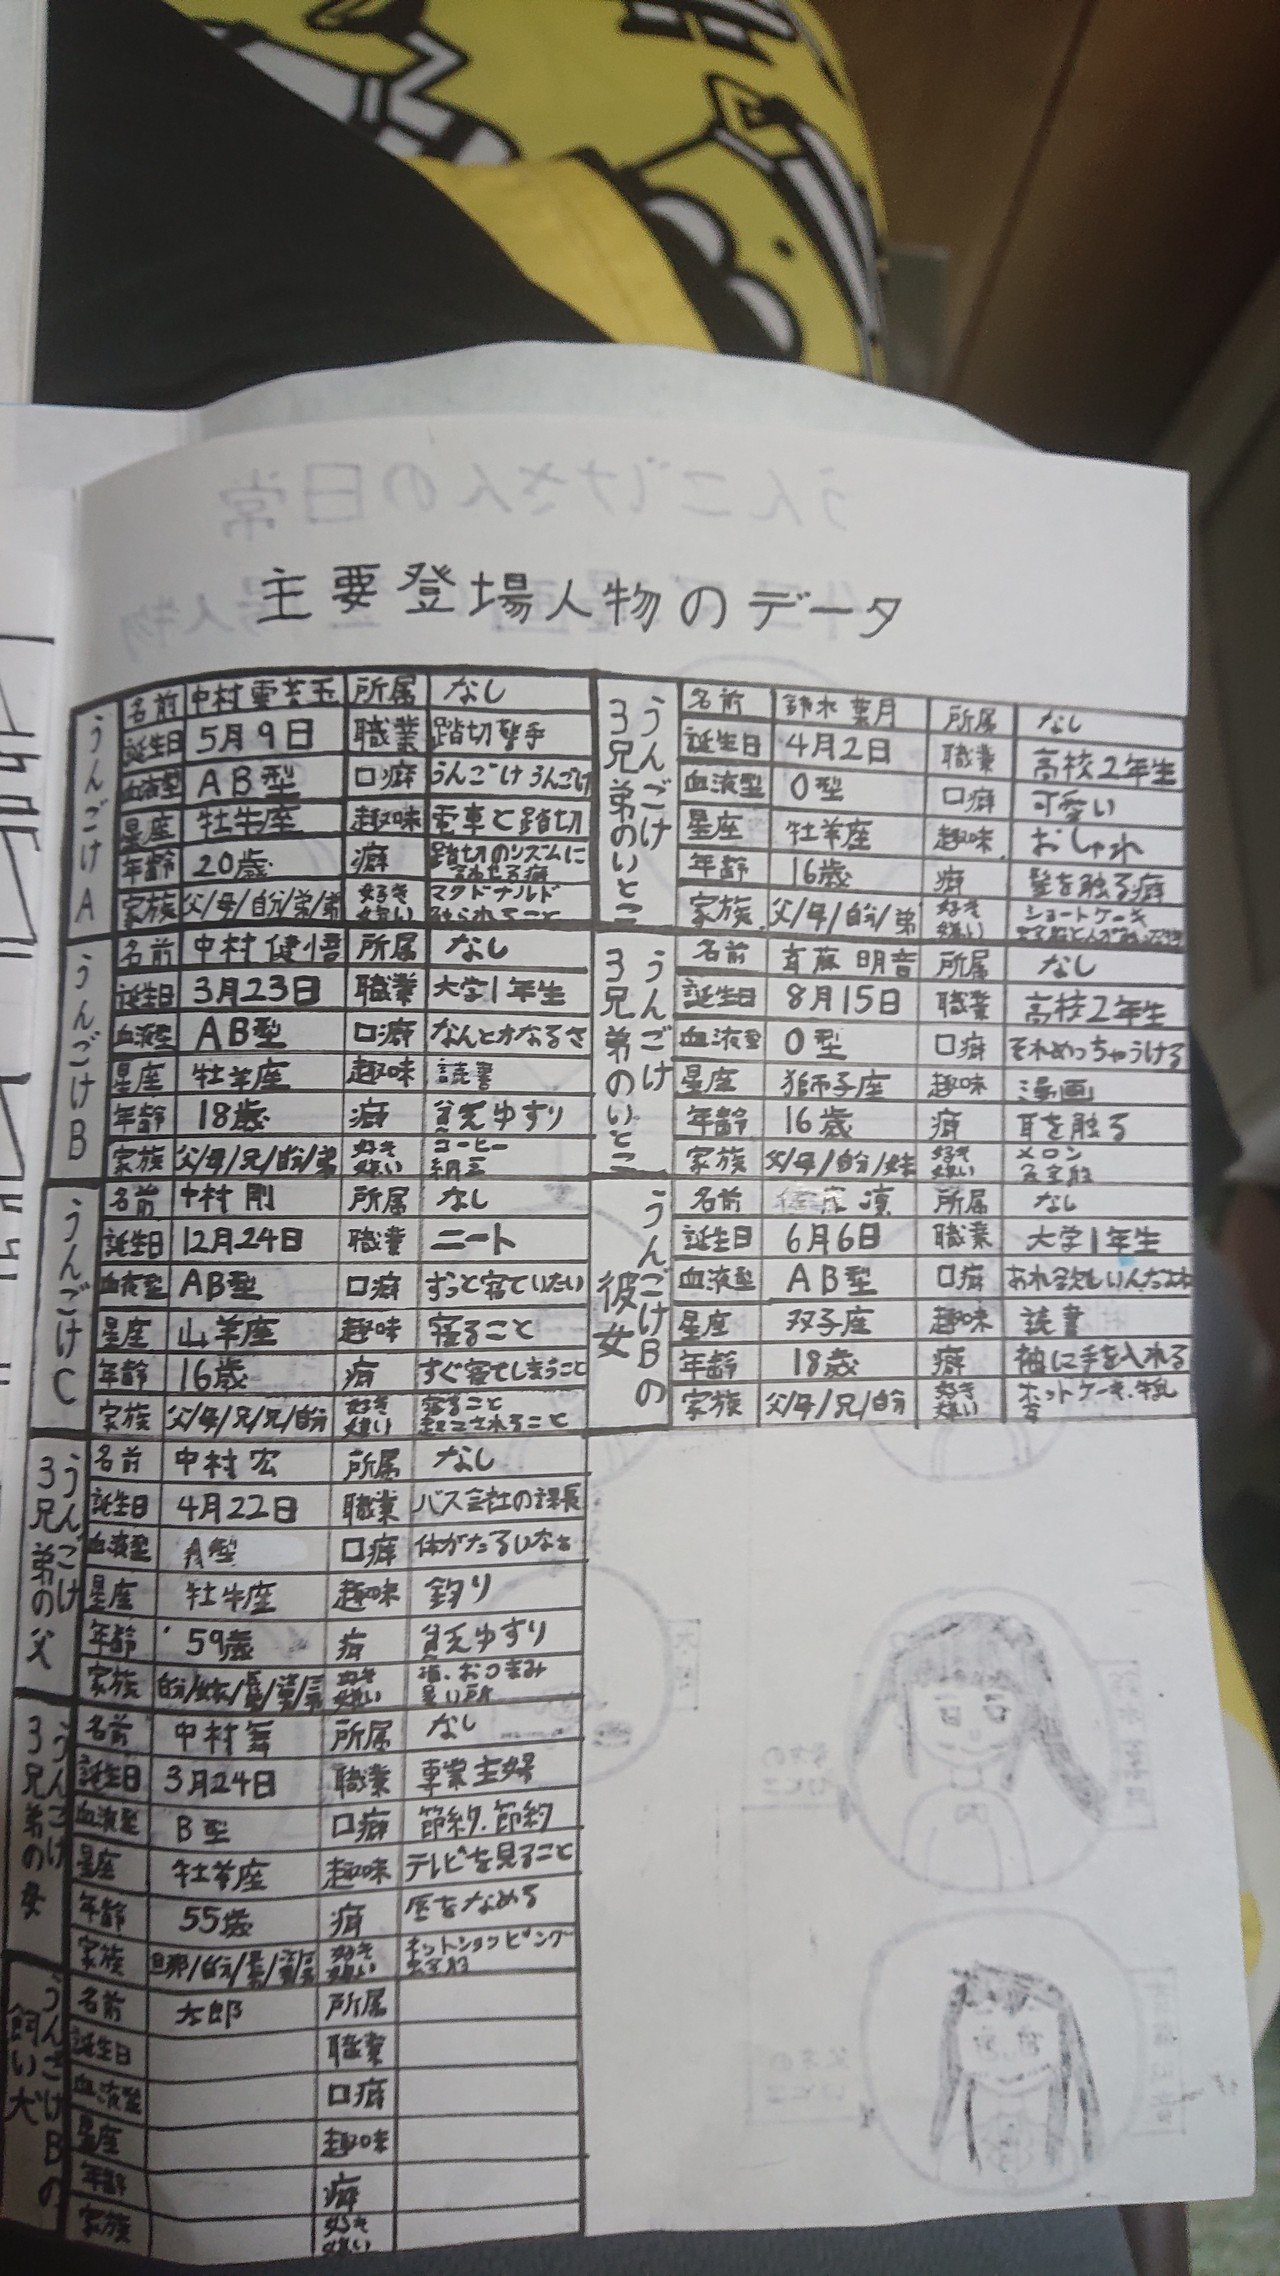 主要登場人物のデータ
うんごけA
名前 中村 所属 なし
誕生日 5月9日 職業 踏切警手
血液型 AB型 口癖 うんごけ うんごけ
星座 牡牛座 趣味 電車と踏切
年齢 20歳 癖 踏切のリズムに合わせる癖
家族 父/母/自分/弟/弟 好き 嫌い マクドナルド 触られること
うんごけB
名前 中村 健悟 所属 なし
誕生日 3月23日 職業 大学1年生
血液型 AB型 口癖 なんとかなるさ
星座 牡羊座 趣味 読書
年齢 18歳 癖 貧乏ゆすり
家族 父/母/兄/自分/弟 好き 嫌い コーヒー 納豆
うんごけC
名前 中村 剛 所属 なし
誕生日 12月24日 職業 ニート
血液型 AB型 口癖 ずっと寝ていたい
星座 山羊座 趣味 寝ること
年齢 16歳 癖 すぐ寝てしまうこと
家族 父/母/兄/兄/自分 好き 嫌い 寝ること 起こされること
うんごけ3兄弟の父
名前 中村 宏 所属 なし
誕生日 4月22日 職業 バス会社の課長
血液型 A型 口癖 体がだるいなぁ
星座 牡牛座 趣味 釣り
年齢 59歳 癖 貧乏ゆすり
家族 自分/ 好き 嫌い 酒、おつまみ
うんごけ3兄弟の母
名前 中村 舞 所属 なし
誕生日 3月24日 職業 専業主婦
血液型 B型 口癖 節約、節約
星座 牡羊座 趣味 テレビを見ること
年齢 55歳 癖 唇をなめる
家族 旦那/自分/ 好き 嫌い ネットショッピング
うんごけBの飼い犬
名前 太郎 所属
誕生日 職業
血液型 口癖
星座 趣味
年齢 癖
家族 好き 嫌い
うんごけ3兄弟のいとこ
名前 鈴木 葉月 所属 なし
誕生日 4月2日 職業 高校2年生
血液型 O型 口癖 可愛い
星座 牡羊座 趣味 おしゃれ
年齢 16歳 癖 髪を触る癖
家族 父/母/自分/弟 好き 嫌い ショートケーキ
うんごけ3兄弟のいとこ
名前 斉藤 明音 所属 なし
誕生日 8月15日 職業 高校2年生
血液型 O型 口癖 それめっちゃうける
星座 獅子座 趣味 漫画
年齢 16歳 癖 耳を触る
家族 父/母/自分/妹 好き 嫌い メロン
うんごけBの彼女
名前 凛 所属 なし
誕生日 6月6日 職業 大学1年生
血液型 AB型 口癖 あれ欲しいんだよね
星座 双子座 趣味 読書
年齢 18歳 癖 袖に手を入れる
家族 父/母/兄/自分 好き 嫌い ホットケーキ、牛乳